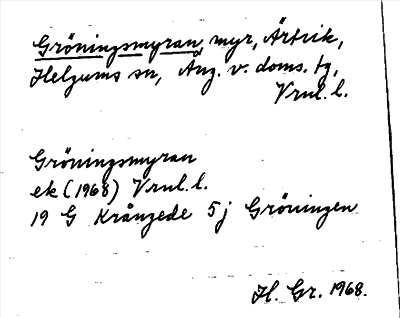 Gröningsmyran, myr, Ärtrik,
Helgums sn, Ång. v. doms. tg,
Vrul. l.
Gröningsmyran
ek (1968) Vrul. l.
19 G Krångede 5j Gröningen
H. Gr. 1968.